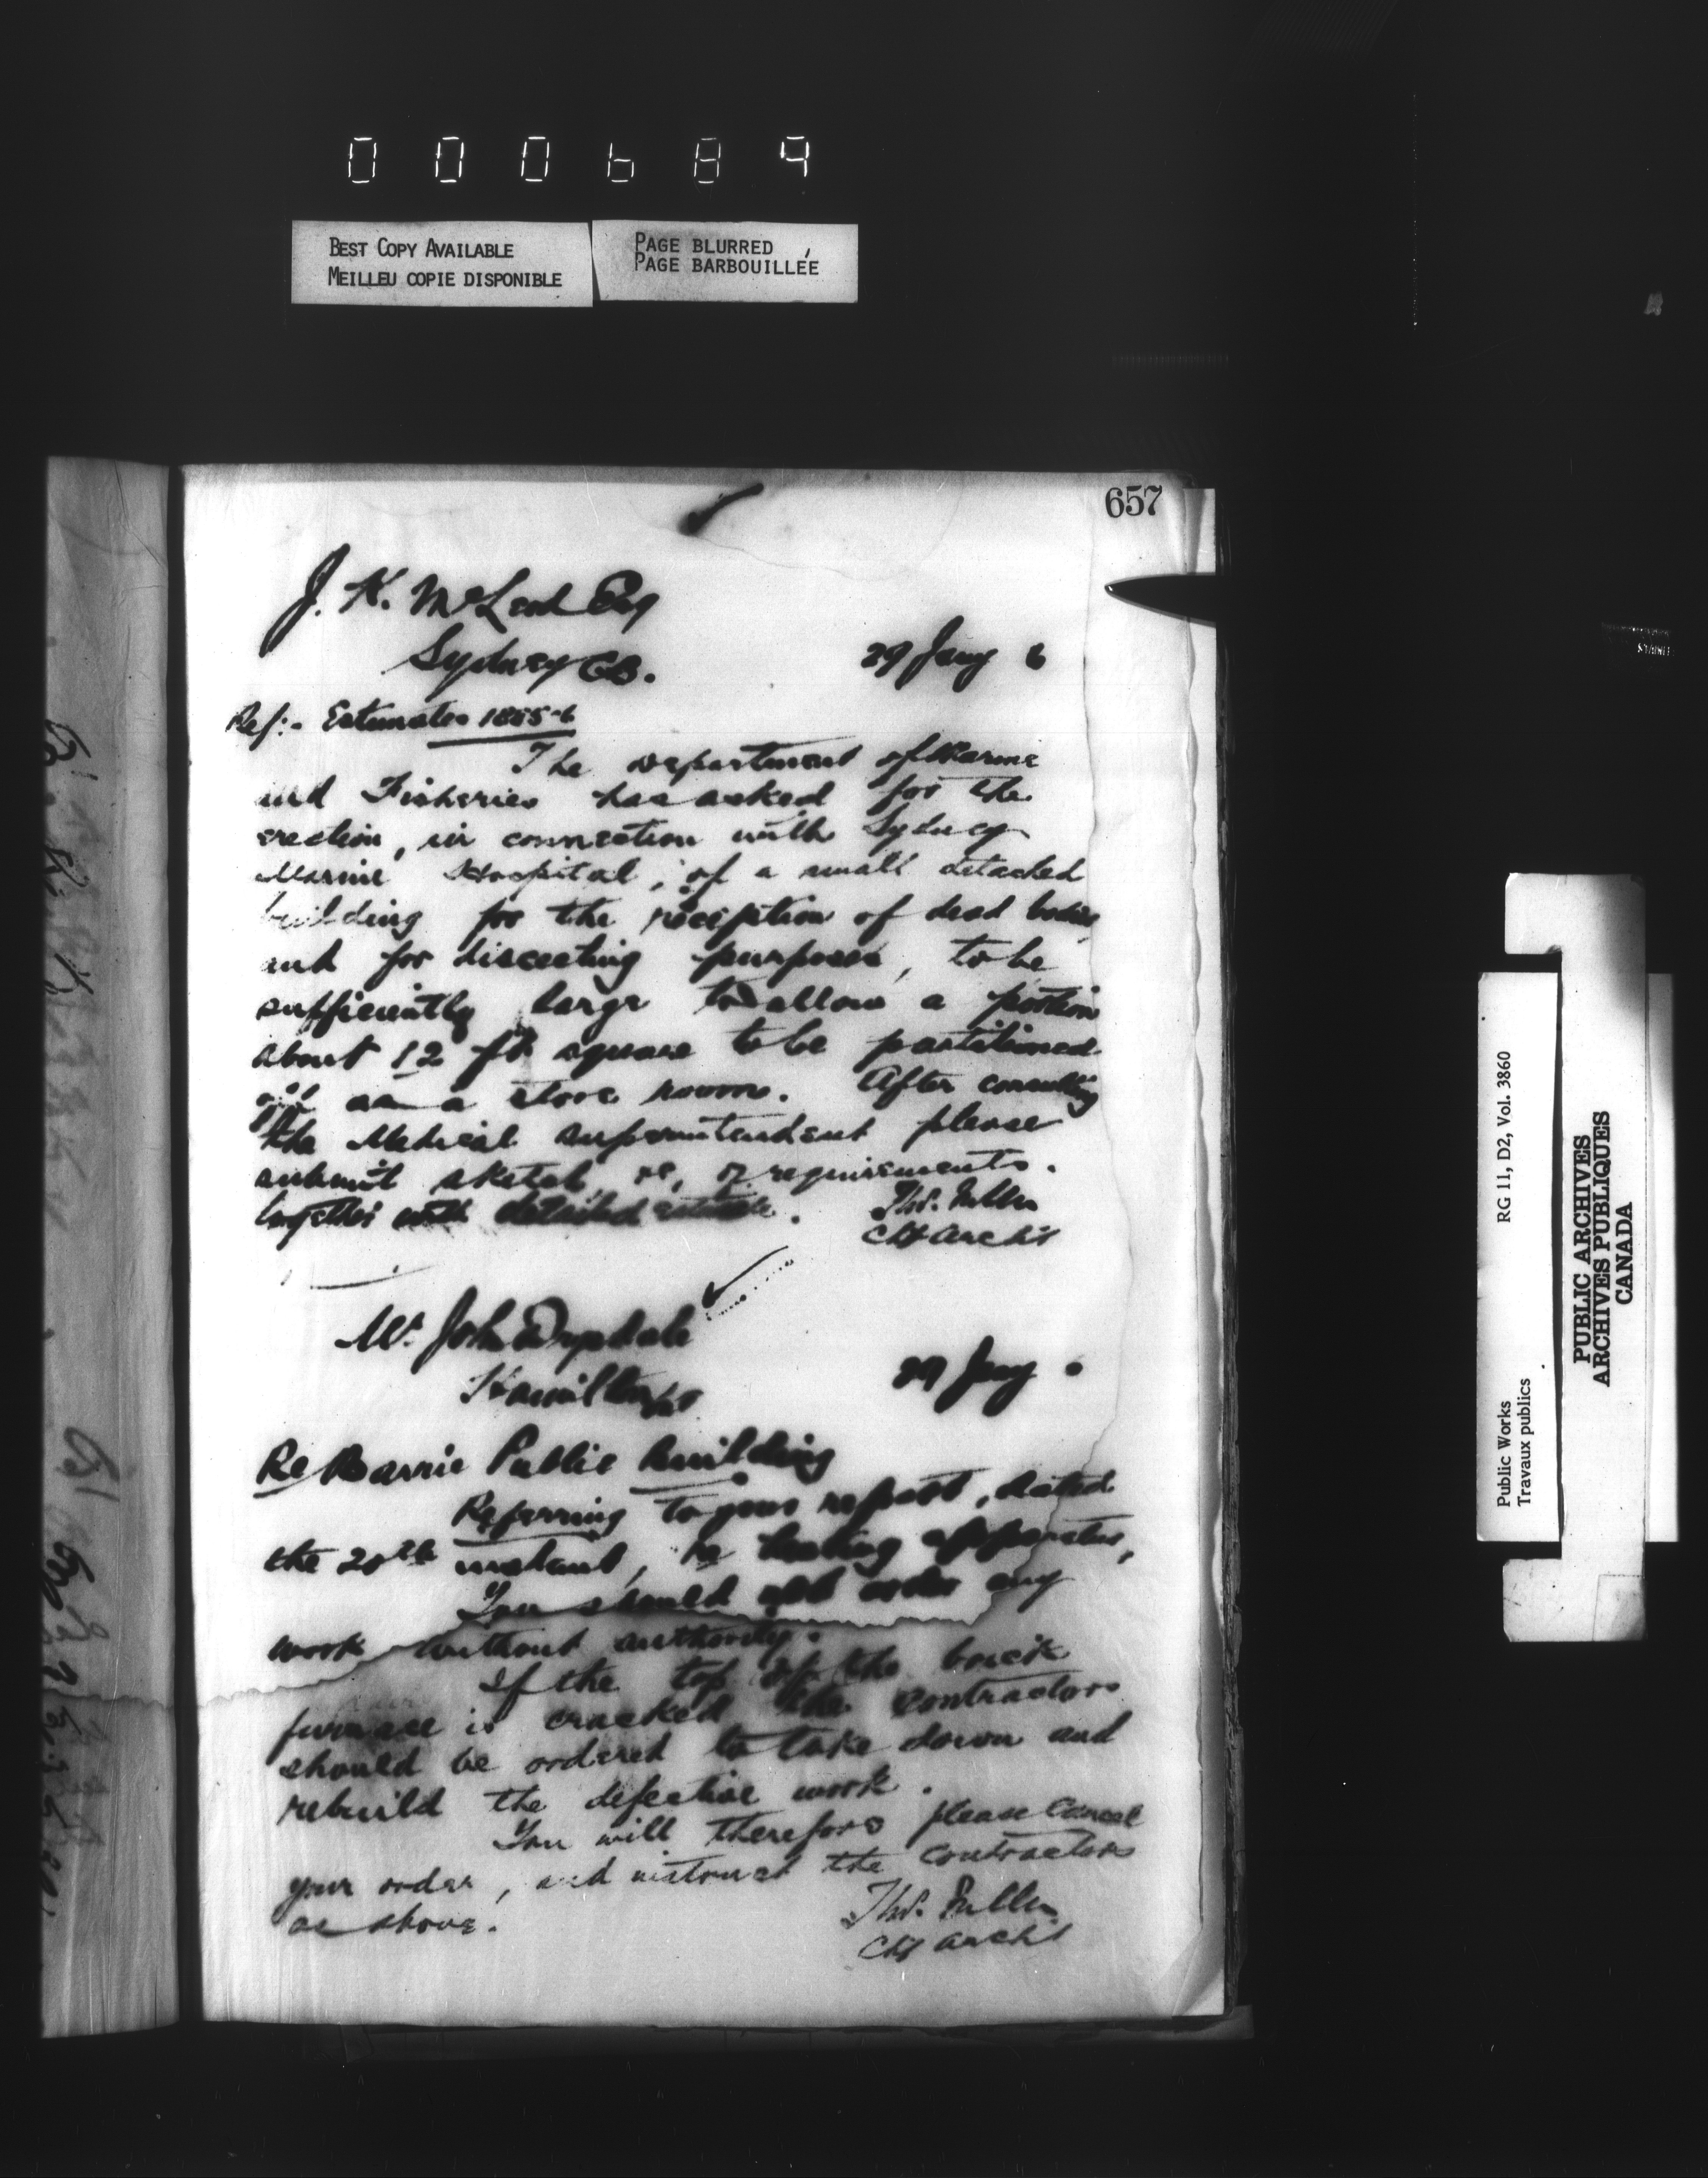 000689
BEST COPY AVAILABLE
MEILLEU COPIE DISPONIBLE
PAGE BLURRED
PAGE BARBOUILLÉE
657
J. K. McLeod Esq
Sydney CB.
29 Jany 6
Ref:- Estimates 1885-6
The department of Marine
and Fisheries has asked for the
erection, in connection with Sydney
Marine Hospital, of a small detached
building for the reception of dead bodies
and for dissecting purposes, to be
sufficiently large to allow a portion
about 12 ft square to be partitioned
off as a store room. After consulting
the Medical Superintendent please
submit sketch, of requirements.
together with detailed estimate.
Thos. Fuller
Chf Archt
Mr. John Drysdale
Hamilton
29 Jany
Re Barrie Public Building
Referring to your report, dated
the 20th instant, re heating apparatus,
You should not order any
work without authority.
If the top of the brick
furnace is cracked the contractors
should be ordered to take down and
rebuild the defective work.
You will therefore please cancel
your order, and instruct the contractors
as above.
Thos. Fuller
Chf Archt
RG 11, D2, Vol. 3860
Public Works
Travaux publics
PUBLIC ARCHIVES
ARCHIVES PUBLIQUES
CANADA